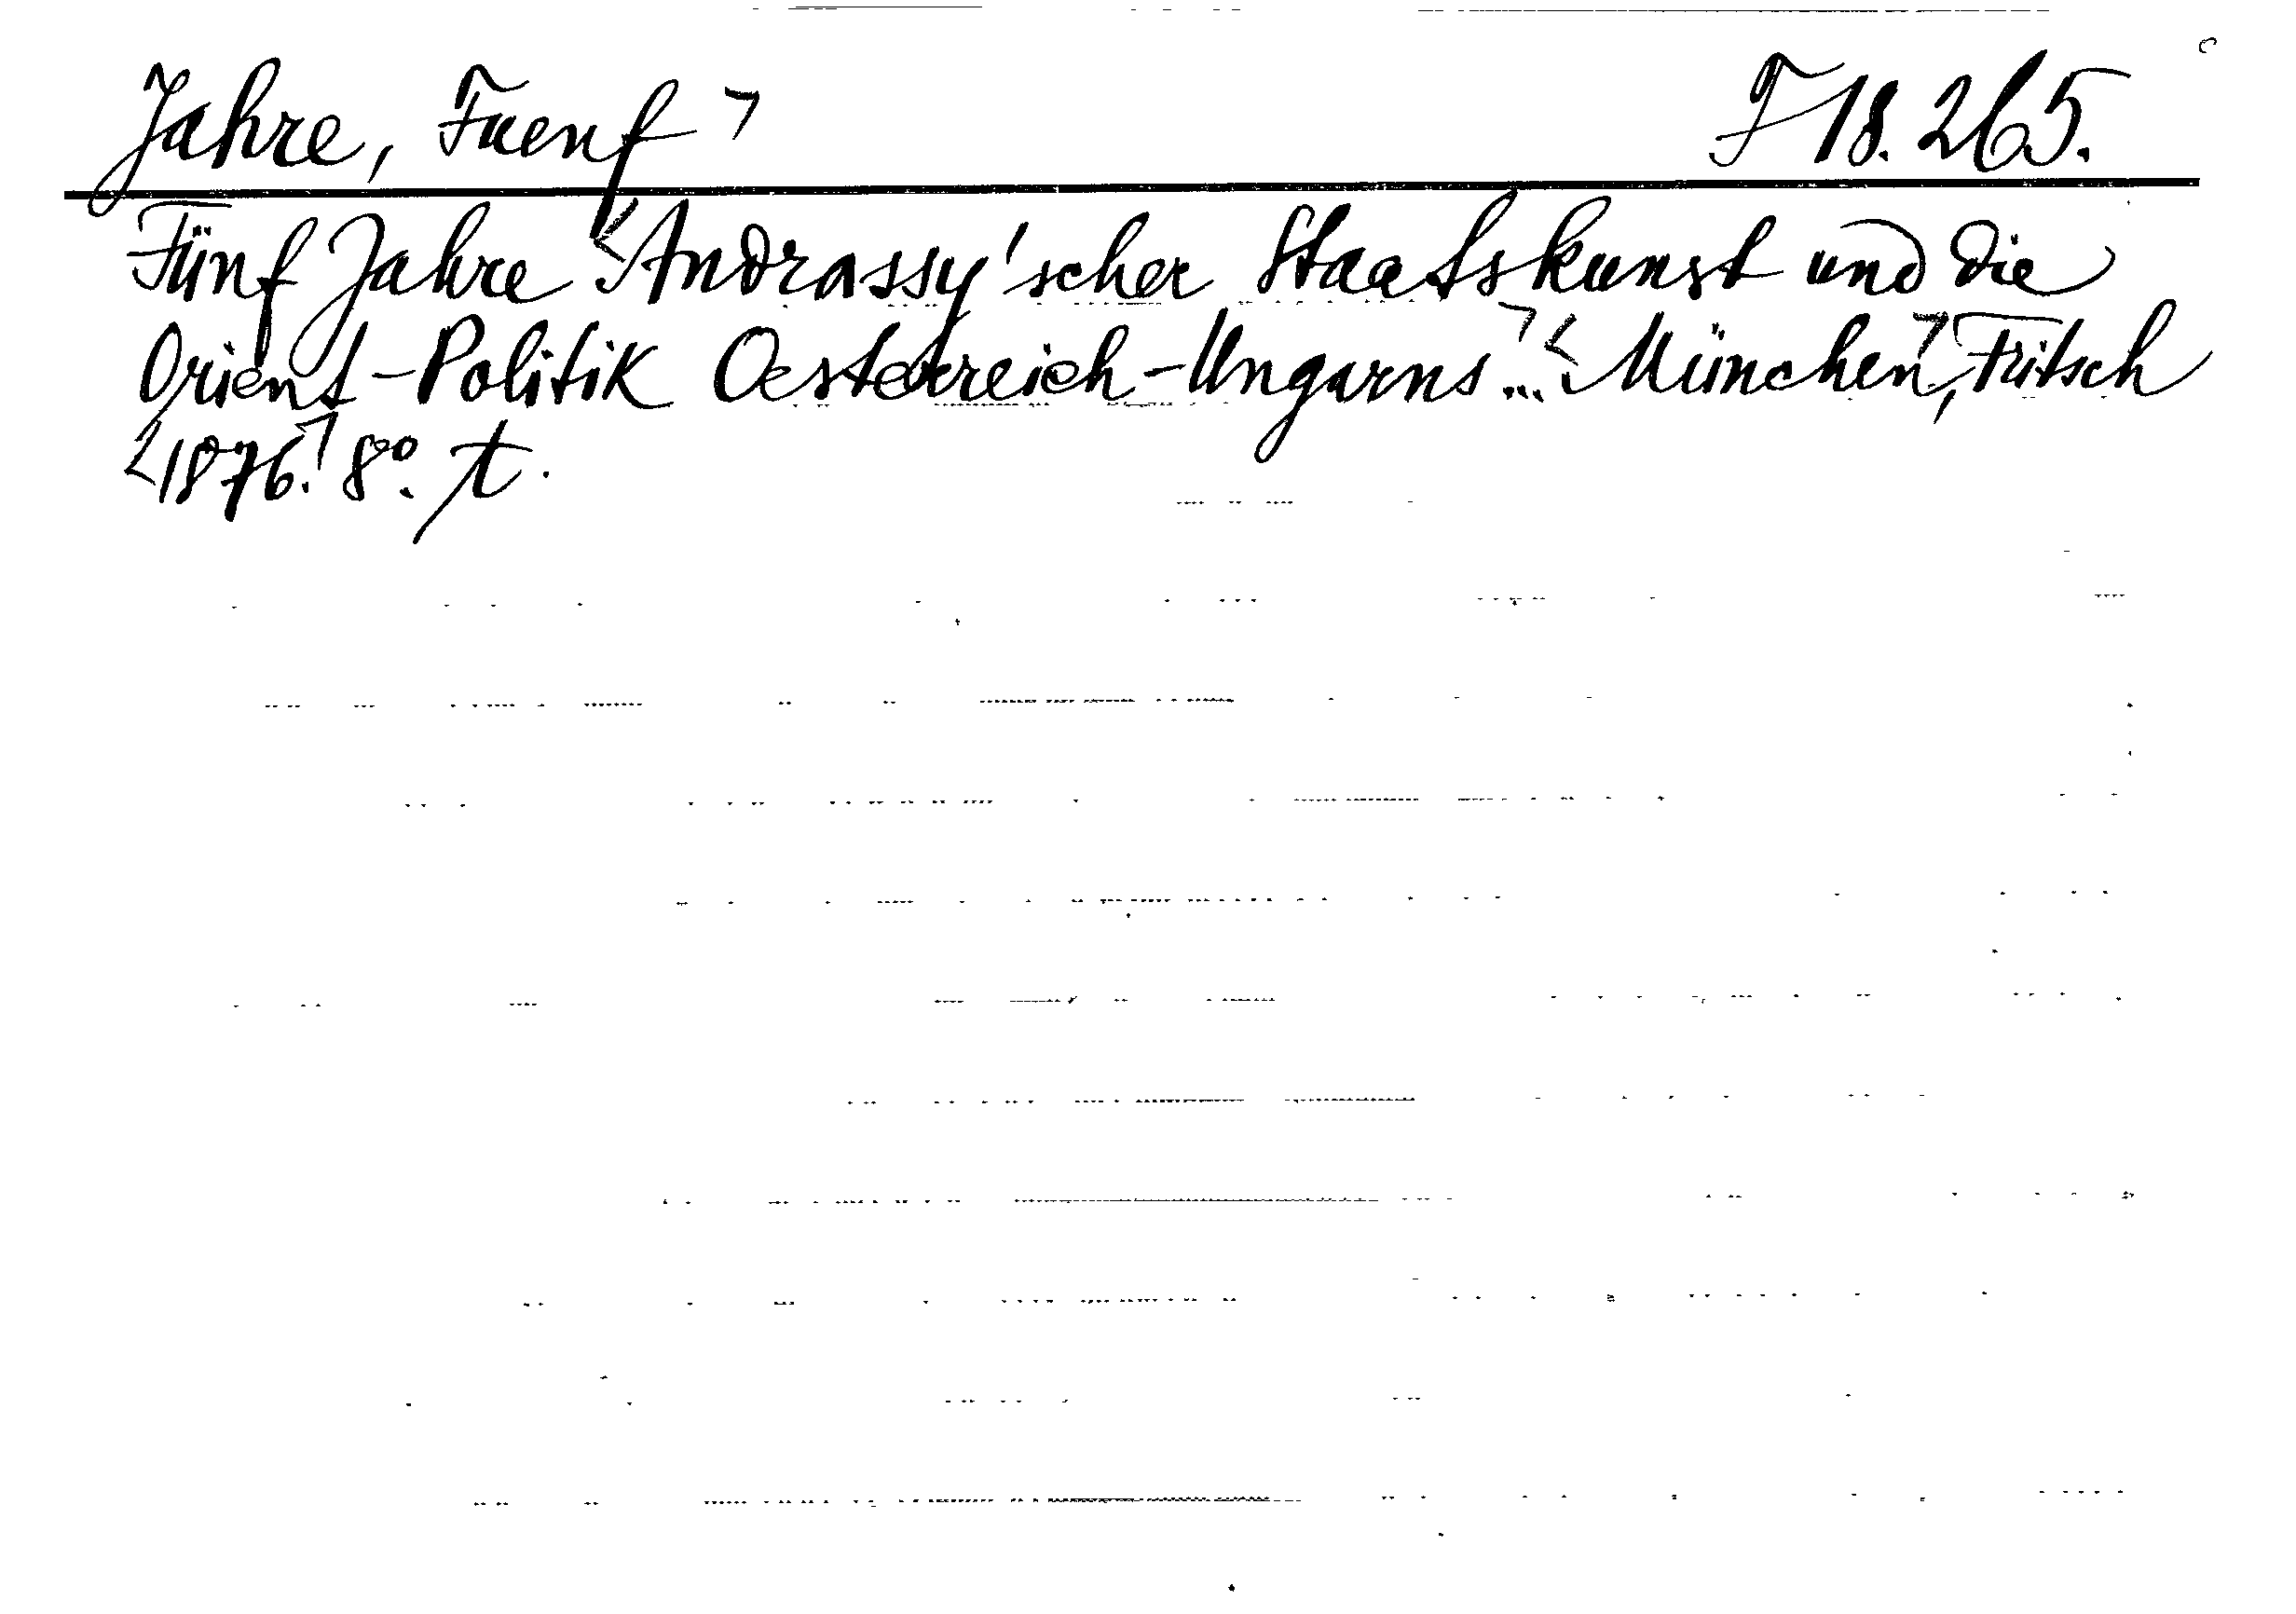 Jahre, Fuenf ⌝ F 18.265.
Fünf Jahre <Andrassy'scher Staatskunst und die
Orient-Politik Oesterreich-Ungarns⌝... <München⌝, Fritsch
<1876.⌝ 8°. t.